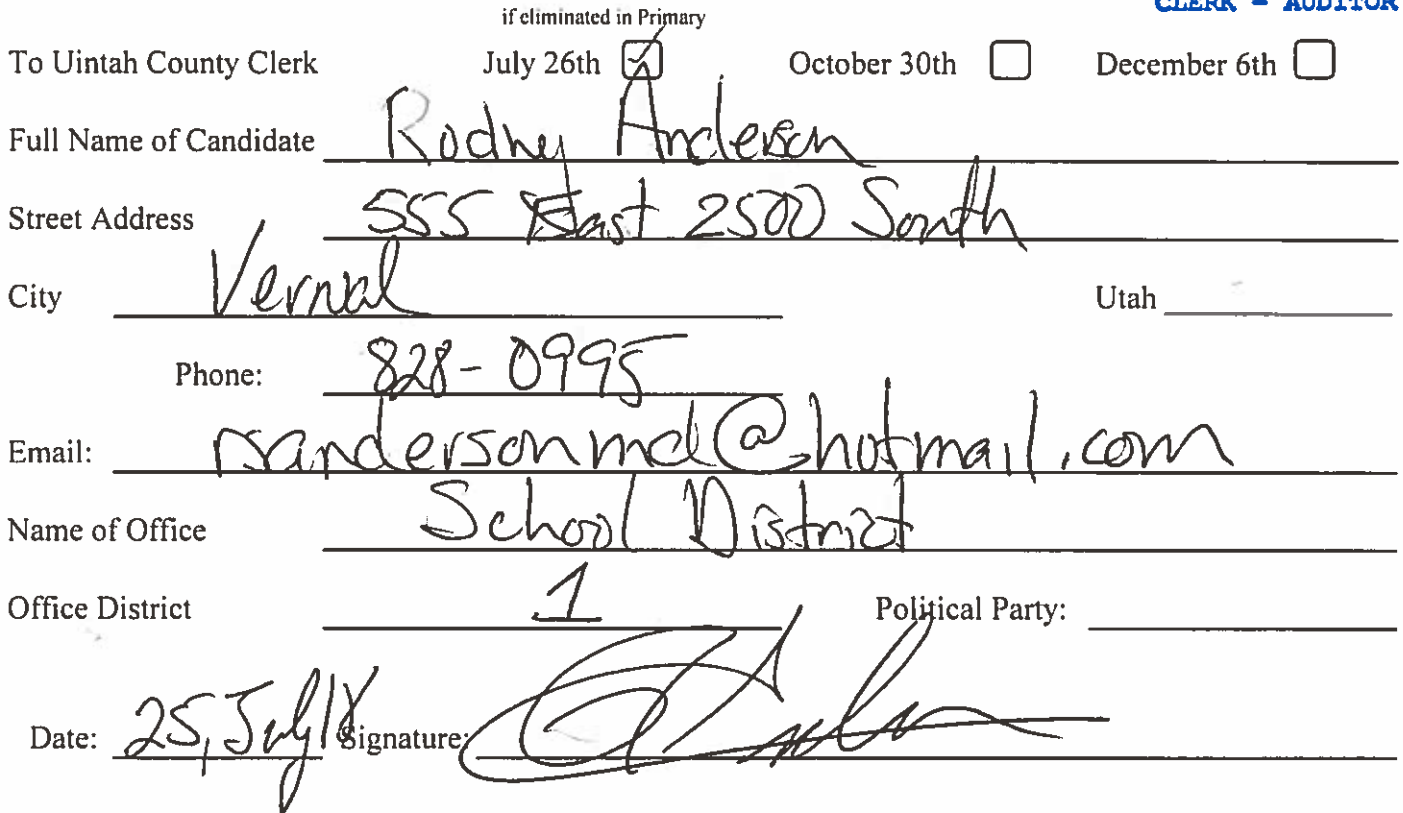 CLERK - AUDITOR
if eliminated in Primary
To Uintah County Clerk July 26th October 30th December 6th
Full Name of Candidate Rodney Anderson
Street Address 555 East 2500 South
City Vernal Utah
Phone: 828-0995
Email: rsandersonmd@hotmail.com
Name of Office School District
Office District 1 Political Party:
Date: 25, July 18 Signature: